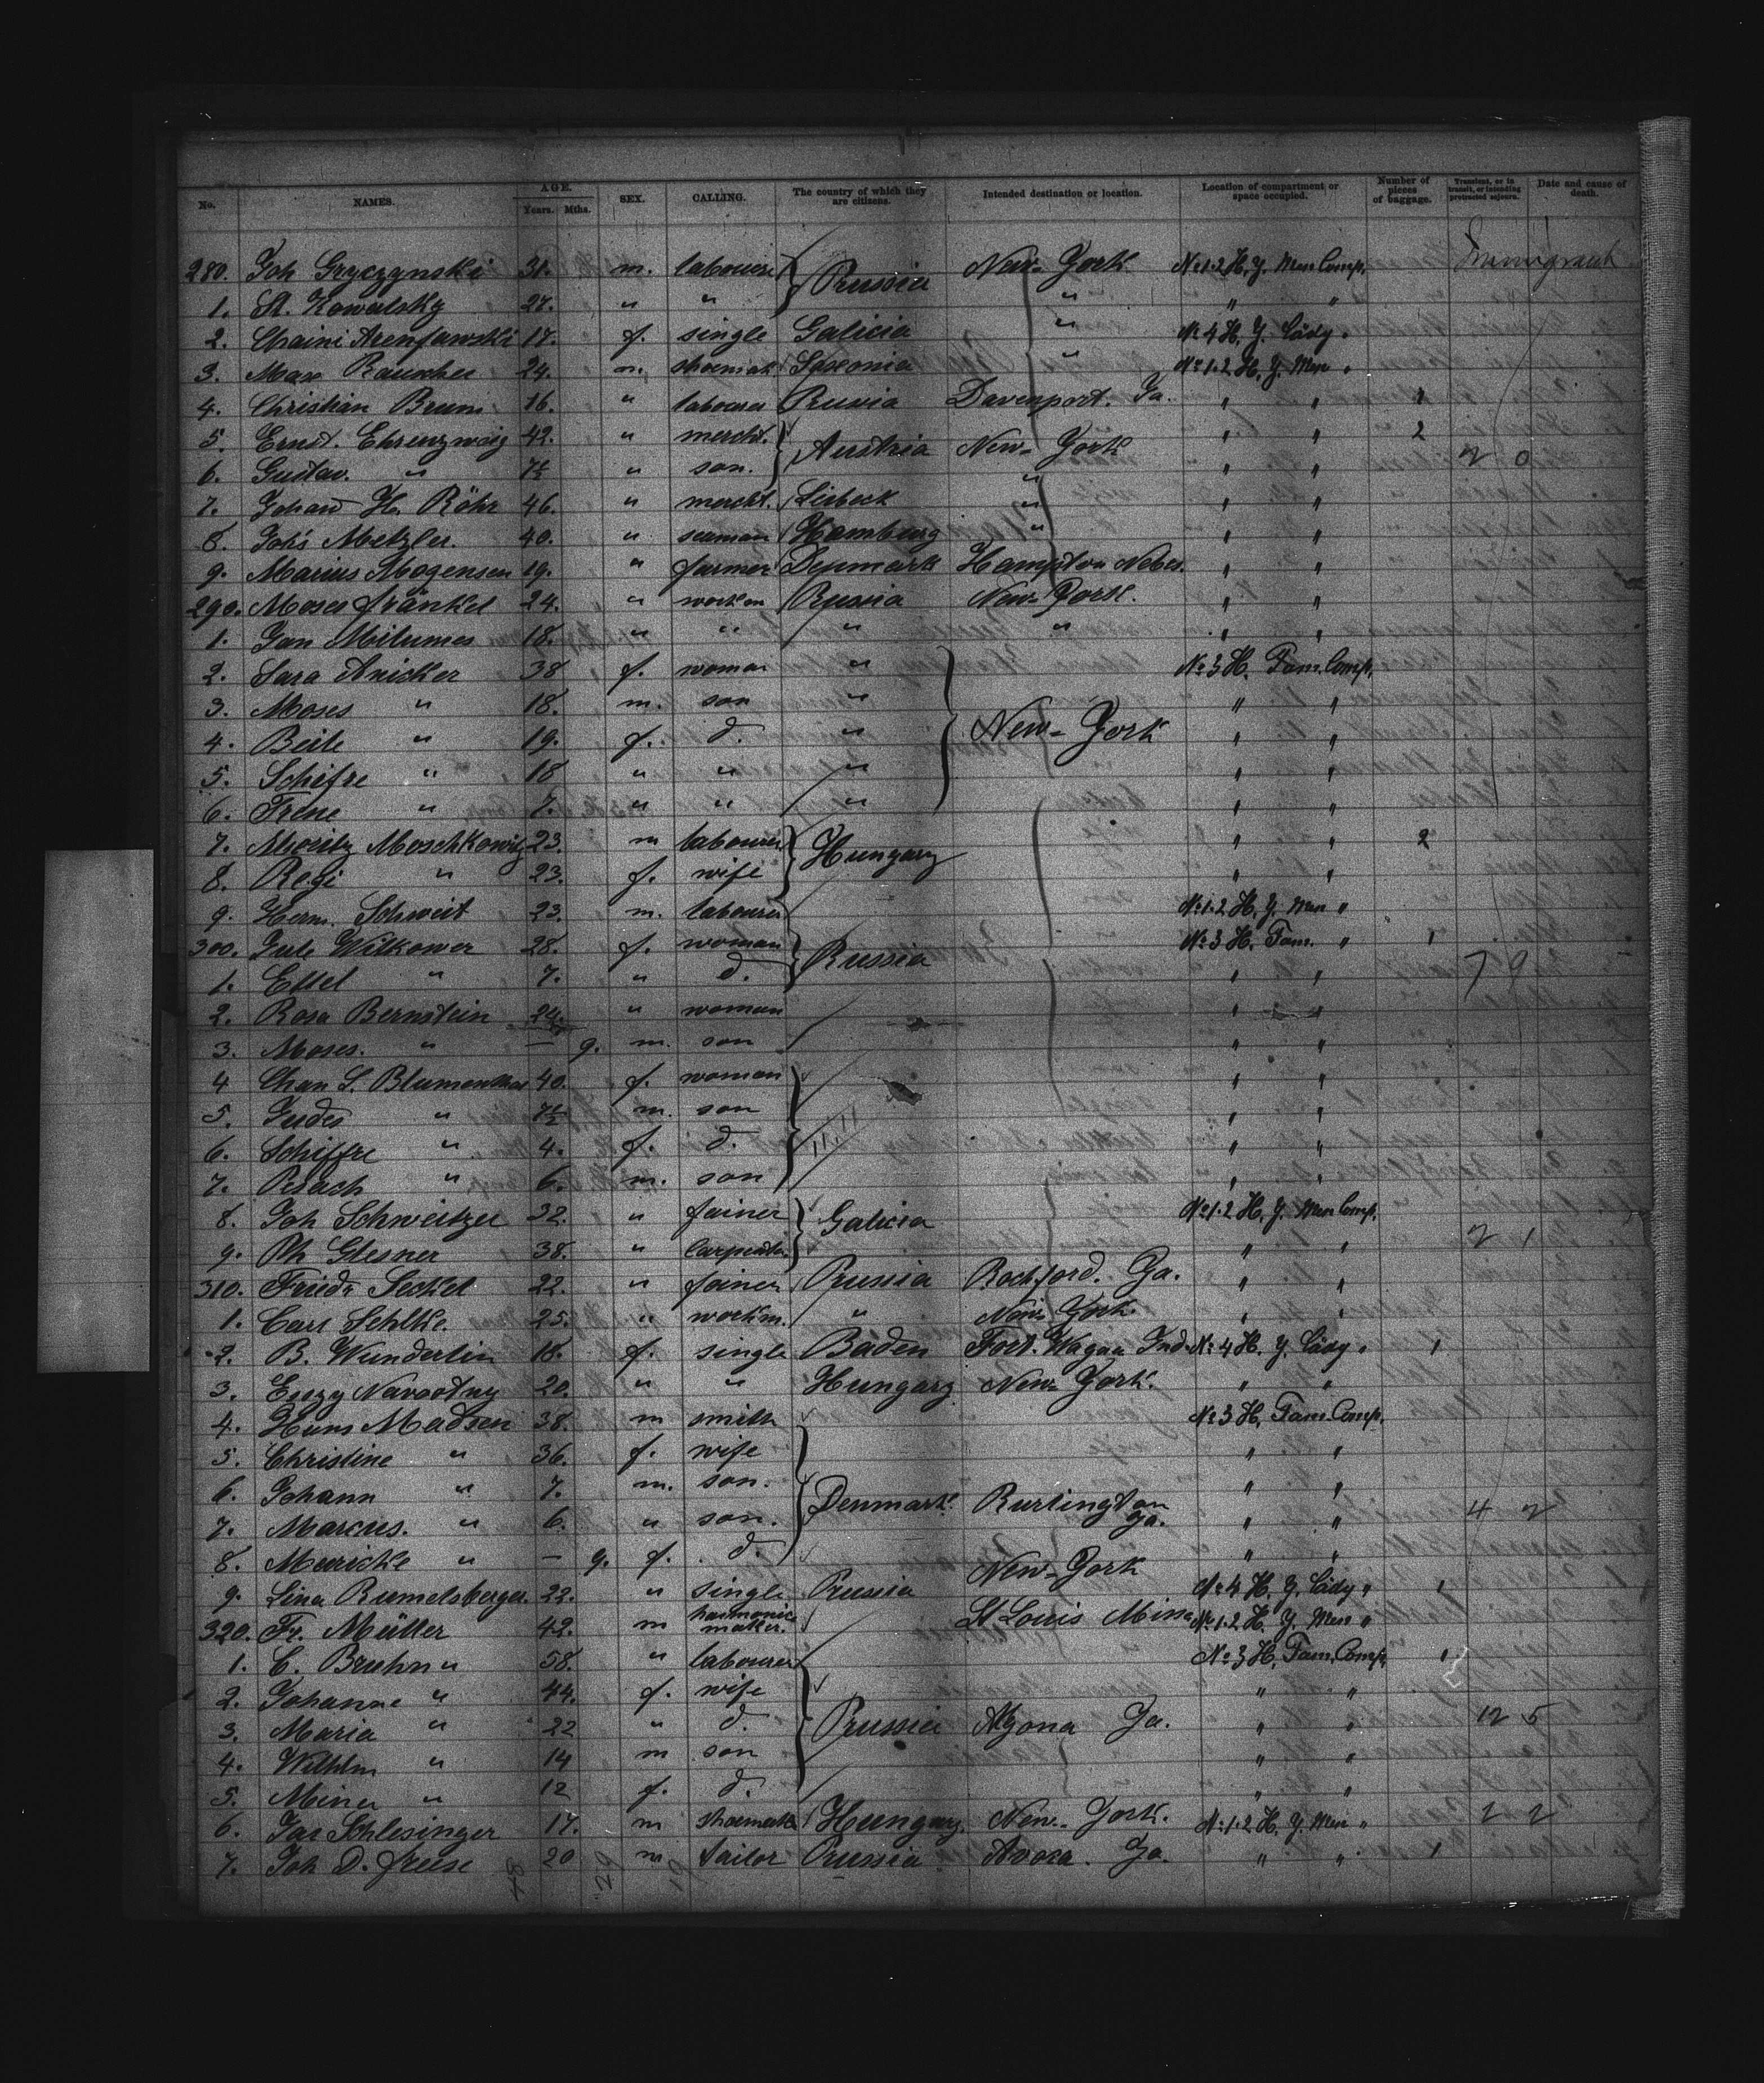 No. NAMES. AGE. Years. Mths. SEX. CALLING. The country of which they are citizens. Intended destination or location. Location of compartment or space occupied. Number of pieces of baggage. Transient, or in transit, or intending protracted sojourn. Date and cause of death.
280. Joh Gryczynski 31. m. labourer Prussia New-York No 1.2 H. Y. Men Comp. Immigrant
1. St. Kowalsky 27. " " " " "
2. Chaini 17. f. single Galicia " No 4 H. Y. Lády "
3. Max Rauscher 24. m. shoemak Saxonia " No 1.2 H. Y. Men "
4. Christian Bruns 16. " labourer Prussia Davenport. Ja. " " 1
5. Ernst. Ehrenzweig 42. " mercht. Austria New-York " " 2
6. Gustav. " 7½ " son. " " 2 0
7. Johan H. Röhr 46. " mercht. Lübeck " " "
8. Johs Metzler. 40. " seaman Hamburg " " "
9. Marius Mogensen 19. " farmer Denmark Hampton Nebr. " "
290. Moses Fränkel 24. " workm Russia New-York. " "
1. Jan Milumes 18. " " " " " "
2. Sara Anicker 38 f. woman " No 3 H. Fam. Comp.
3. Moses " 18. m. son " New-York " "
4. Beile " 19. f. d. " " "
5. Schifre " 18 " " " " "
6. Frene " 7. " " " " "
7. Moritz Moschkowitz 23. m labourer Hungary " " 2
8. Regi " 23. f. wife " "
9. Herm. Schweit 23. m. labourer No 1.2 H. Y. Men "
300. Gule Witkower 28. f. woman Russia No 3 H. Fam. " 1
1. Ettel " 7. " d. " " 7 9
2. Rosa Bernstein 24. " woman " "
3. Moses. " — 9. m. son " "
4 Chan S. Blumenthal 40. f. woman " "
5. Judes " 7½ m. son " "
6. Schiffre " 4. f. d. " "
7. Pesach " 6. m. son " "
8. Joh Schweitzer 32. " joiner Galicia No 1.2 H. Y. Men Comp.
9. Ph Glesner 38. " Carpenter " " 2 1
310. Friedr Seckel 22. " joiner Prussia Rockford. Ja. " "
1. Carl Sehlke. 25. " workm. " New-York. " "
2. B. Wunderlin 18. f. single Baden Fort. Wayne Ind. No 4 H. Y. Lády " 1
3. Navootny 20. " " Hungary New-York. " "
4. Hans Madsen 38. m smith No 3 H. Fam. Comp.
5. Christine " 36. f. wife " "
6. Johann " 7. m. son. Denmark. Burlington Ja. " "
7. Marcus. " 6. " son. " " 4 2
8. Mariche " — 9. f. d. " "
9. Lina Rumelsberger. 22. " single Prussia New-York No 4 H. Y. Lády " 1
320. Fr. Müller 42. m harmonic maker. St. Louis Miss. No 1.2 H. Y. Men "
1. C. Bruhn " 58. " labourer No 3 H. Fam. Comp. 1
2. Johanne " 44. f. wife " "
3. Maria " 22 " d. Prussia Algona Ja. " " 12 5
4. Wilhlm " 14 m son " "
5. Mina " 12 f. d. " "
6. Jac Schlesinger 17. m shoemak Hungary. New-York. No 1.2 H. Y. Men " 2 2
7. Joh D. Freese 20 m. tailor Prussia Avoca. Ja. " " 1